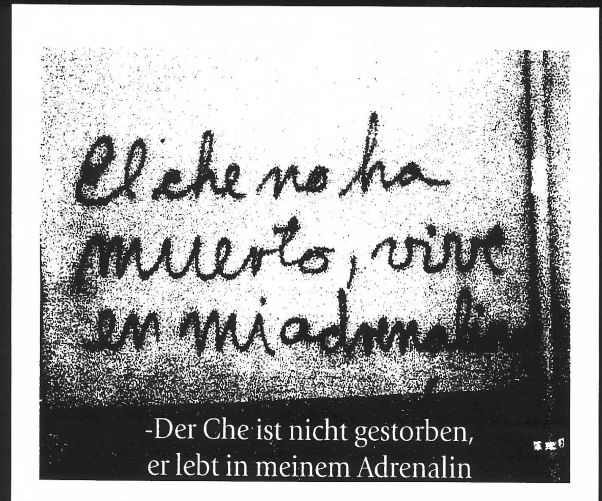 El che no ha
muerto, vive
en mi adrenalina
-Der Che ist nicht gestorben,
er lebt in meinem Adrenalin